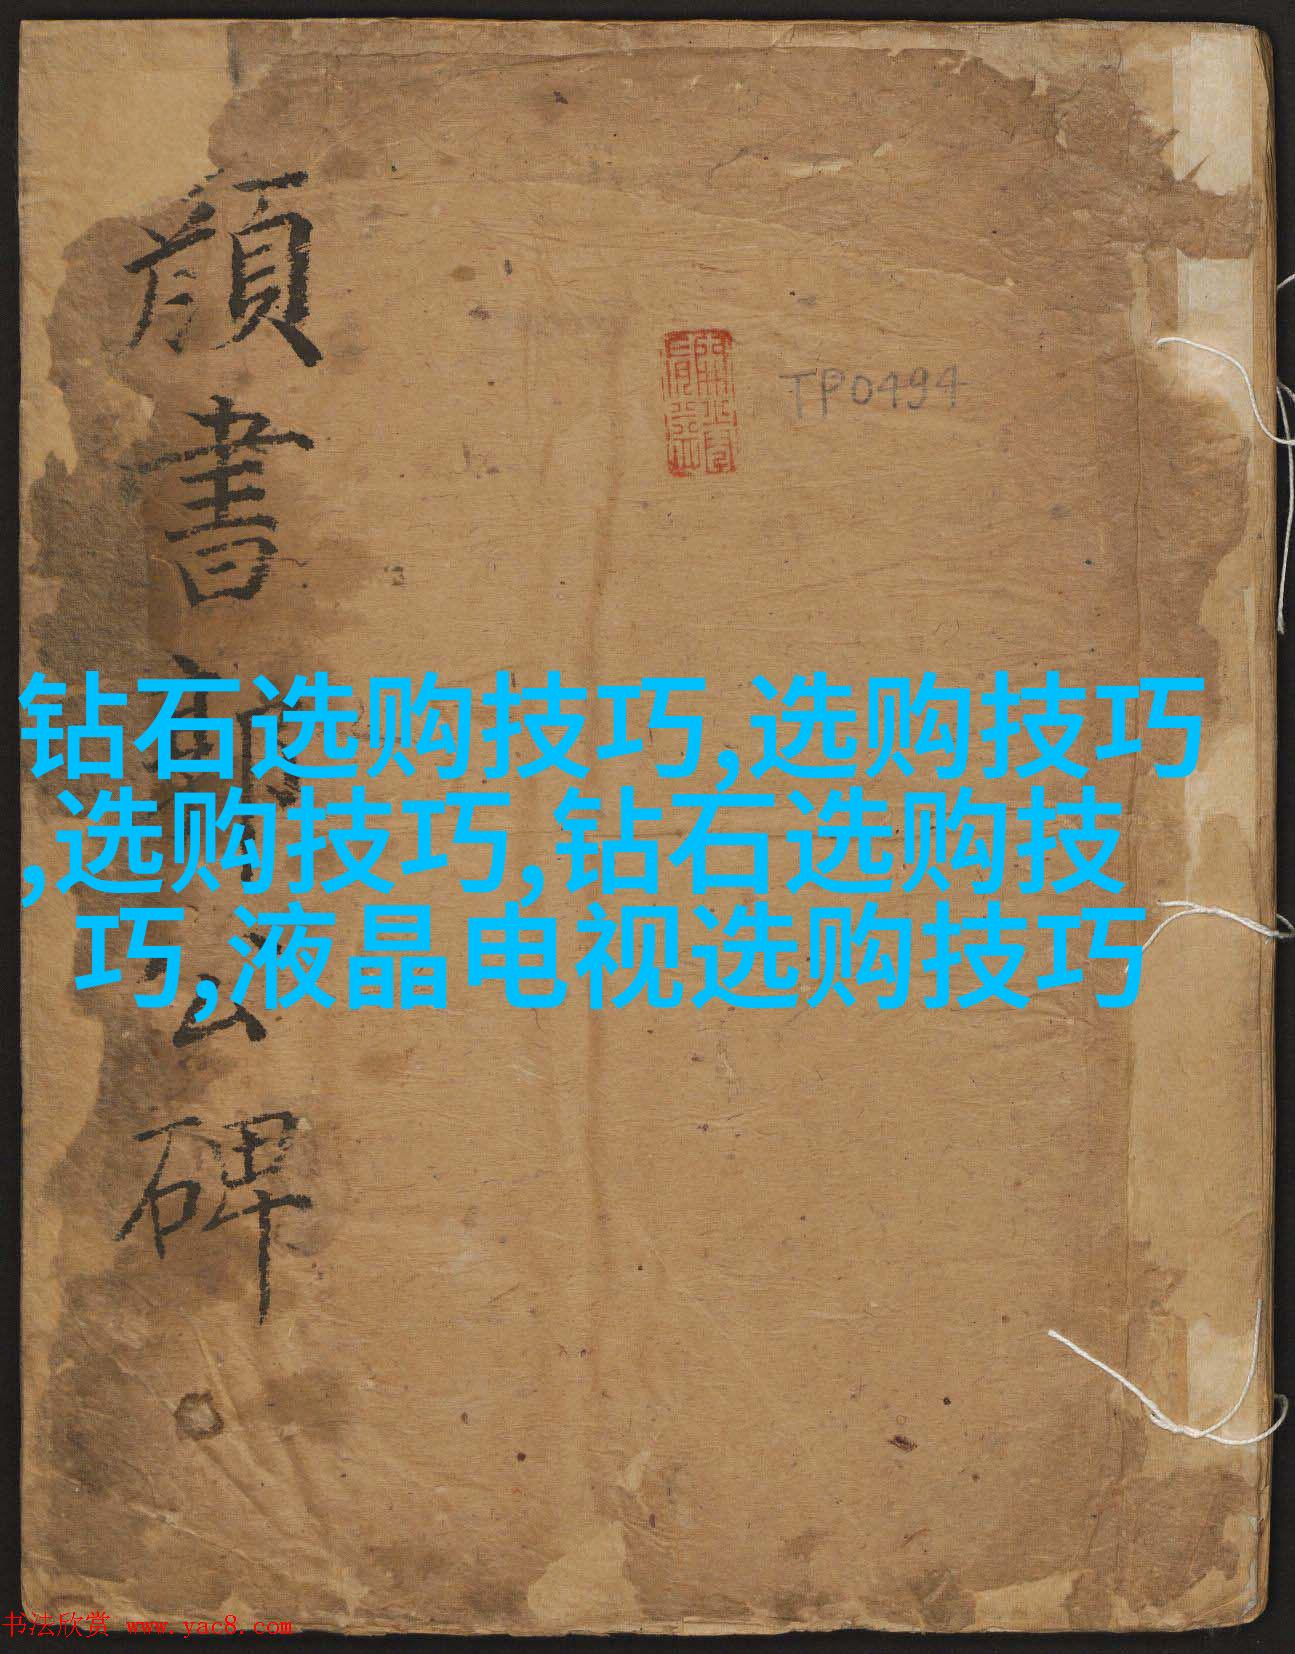 顔書郭公碑
TP0494
钻石选购技巧,选购技巧
,选购技巧,钻石选购技
巧,液晶电视选购技巧
书法欣赏 www.yac8.com